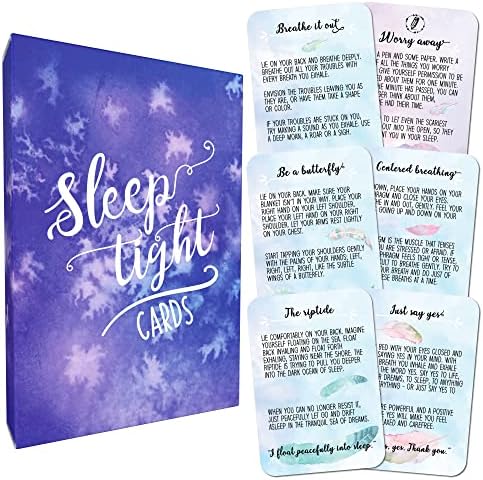 Sleep
tight
CARDS
Breathe it out
LIE ON YOUR BACK AND BREATHE DEEPLY.
BREATHE OUT ALL YOUR TROUBLES WITH
EVERY BREATH YOU EXHALE.
ENVISION THE TROUBLES LEAVING YOU AS
THEY ARE, OR HAVE THEM TAKE A SHAPE
OR COLOR.
IF YOUR TROUBLES ARE STUCK ON YOU,
TRY MAKING A SOUND AS YOU EXHALE. USE
A DEEP MOAN, A ROAR OR A SIGH.
Worry away
A PEN AND SOME PAPER. WRITE A
OF ALL THE THINGS YOU WORRY
GIVE YOURSELF PERMISSION TO BE
ED ABOUT THEM FOR ONE MINUTE.
MINUTE HAS PASSED, YOU CAN
ER THINK ABOUT THEM,
E HAD THEIR TIME.
TO LET EVEN THE SCARIEST
OUT INTO THE OPEN, SO THEY
YOU IN YOUR SLEEP.
Be a butterfly
LIE ON YOUR BACK. MAKE SURE YOUR
BLANKET ISN'T IN YOUR WAY. PLACE YOUR
RIGHT HAND ON YOUR LEFT SHOULDER,
PLACE YOUR LEFT HAND ON YOUR RIGHT
SHOULDER, LET YOUR ARMS REST LIGHTLY
ON YOUR CHEST.
START TAPPING YOUR SHOULDERS GENTLY
WITH THE PALMS OF YOUR HANDS; LEFT,
RIGHT, LEFT, RIGHT, LIKE THE SUBTLE
WINGS OF A BUTTERFLY.
Centered breathing
OWN, PLACE YOUR HANDS ON YOUR
HRAGM AND CLOSE YOUR EYES.
HE IN AND OUT, GENTLY, FEEL YOUR
GOING UP AND DOWN ON YOUR
SM IS THE MUSCLE THAT TENSES
ARE STRESSED OR AFRAID. IF
PHRAGM FEELS TIGHT OR TENSE,
CULT TO BREATHE GENTLY. TRY TO
YOUR BREATH AND DO JUST OF
THESE BREATHS AT A TIME.
The riptide
LIE COMFORTABLY ON YOUR BACK. IMAGINE
YOURSELF FLOATING ON THE SEA, FLOAT
BACK INHALING AND FLOAT FORTH
EXHALING, STAYING NEAR THE SHORE. THE
RIPTIDE IS TRYING TO PULL YOU DEEPER
INTO THE DARK OCEAN OF SLEEP.
WHEN YOU CAN NO LONGER RESIST IT,
JUST PEACEFULLY LET GO AND DRIFT
ASLEEP IN THE TRANQUIL SEA OF DREAMS.
"I float peacefully into sleep."
Just say yes
BED WITH YOUR EYES CLOSED AND
SAYING YES IN YOUR MIND. WITH
BREATH YOU INHALE AND EXHALE
THE WORD YES. SAY YES TO LIFE,
TO SLEEP, TO ANYTHING
ANYTHING - OR JUST SAY YES TO
ARE POWERFUL AND A POSITIVE
YES WILL MAKE YOU FEEL
AXED AND CAREFREE.
, yes. Thank you."